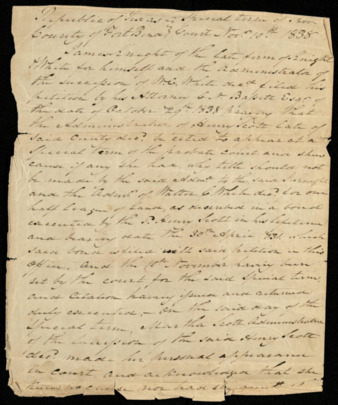 Republic of Texas Special term of Pro
County of Fort Bend Court Novr 10th 1838
James Knight of the late firm of Knight
& White for himself and the administrator of
the Succession of W. C. White decd filed his
petition by his Attorney C. M. Bassett Esqr of
the date of October 29th 1838 Praying that
the Administrator of Henry Scott late of
said County decd be cited to appear at a
Special term of the probate Court and shew
cause if any she had why title should not
be made by the said Admr to the said Knight
and the Admr of Walter C White decd for one
half league of land as described in a bond
executed by the sd Henry Scott in his lifetime
and bearing date the 30th April 1831 which
said bond is filed with said petition in this
office, and the 10th November having been
set by the court for the said Special term
and Citation having issued and returned
duly executed - On the said day of the
Special term, Martha Scott Administratrix
of the Succession of the said Henry Scott
decd made her personal appearance
in court and acknowledged that she
knew no cause nor had she